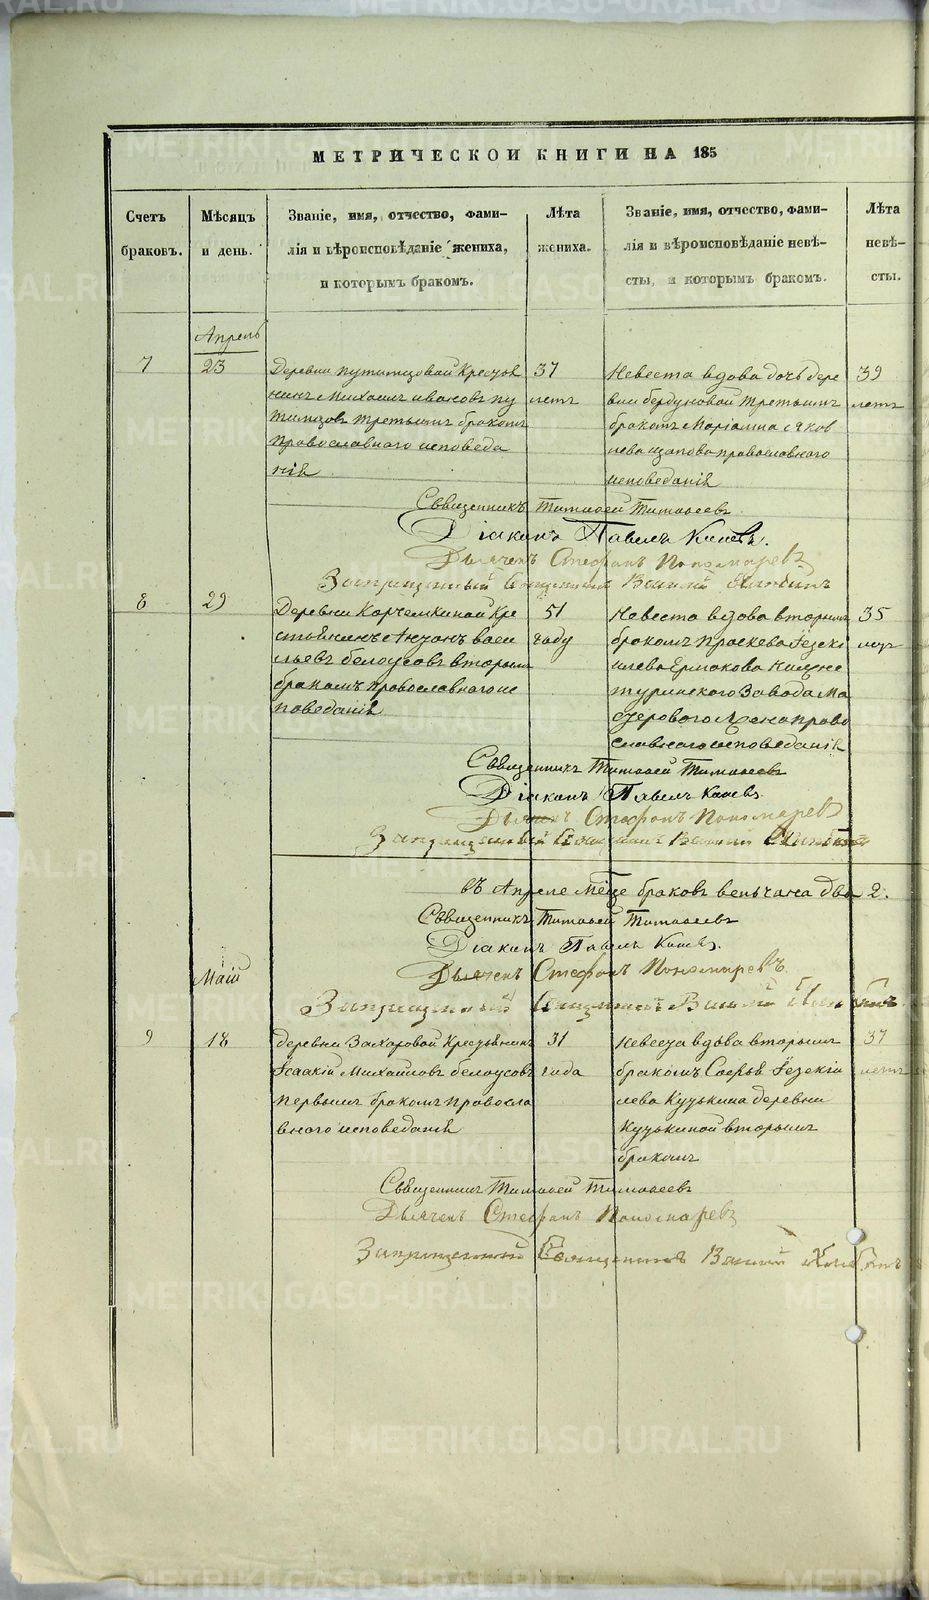 МЕТРИЧЕСКОЙ КНИГИ НА 185
Счетъ браковъ.
Мѣсяцъ и день.
Званіе, имя, отчество, фами-
лія и вѣроисповѣданіе жениха,
и которымъ бракомъ.
Лѣта жениха.
Званіе, имя, отчество, фами-
лія и вѣроисповѣданіе невѣ-
сты, и которымъ бракомъ.
Лѣта невѣ-
сты.
Апрель
7
23
Деревни Путимцовой Крестья
нинъ Михаилъ Ивановъ Пу
тимцовъ третьимъ бракомъ
Православнаго исповеда
нія
37
летъ
Невеста вдова дочь дере
вни бердуновой третьимъ
бракомъ Маріамна Яков
лева православнаго
исповеданія
39
летъ
Священникъ Тимофей Тимофеевъ
Діаконъ Павелъ
Дьячекъ Стефанъ Пономаревъ
Запрещенный Священникъ
8
29
Деревни Корчемкиной Кре
стьянинъ васи
льевъ белоусовъ вторымъ
бракомъ православнаго ис
поведанія
51
году
Невеста вдова вторымъ
бракомъ Праскева Іезекі
илева Ермакова Нижне
туринскаго Завода Ма
стероваго жена право
славнаго исповеданія
35
летъ
Священникъ Тимофей Тимофеевъ
Діаконъ Павелъ
Дьячекъ Стефанъ Пономаревъ
Запрещенный Священникъ
въ Апреле м-це браковъ венчано два 2.
Священникъ Тимофей Тимофеевъ
Діаконъ Павелъ
Дьячекъ Стефанъ Пономаревъ
Запрещенный Священникъ
Маій
9
18
деревни Захаровой Крестьянинъ
Ісаакій Михаиловъ белоусовъ
первымъ бракомъ правосла
внаго исповеданія
31
года
Невеста вдова вторымъ
бракомъ Софья Іезекіи
лева Кузькина деревни
Кузькиной вторымъ
бракомъ
37
летъ
Священникъ Тимофей Тимофеевъ
Дьячекъ Стефанъ Пономаревъ
Запрещенный Священникъ
METRIKI.GASO-URAL.RU